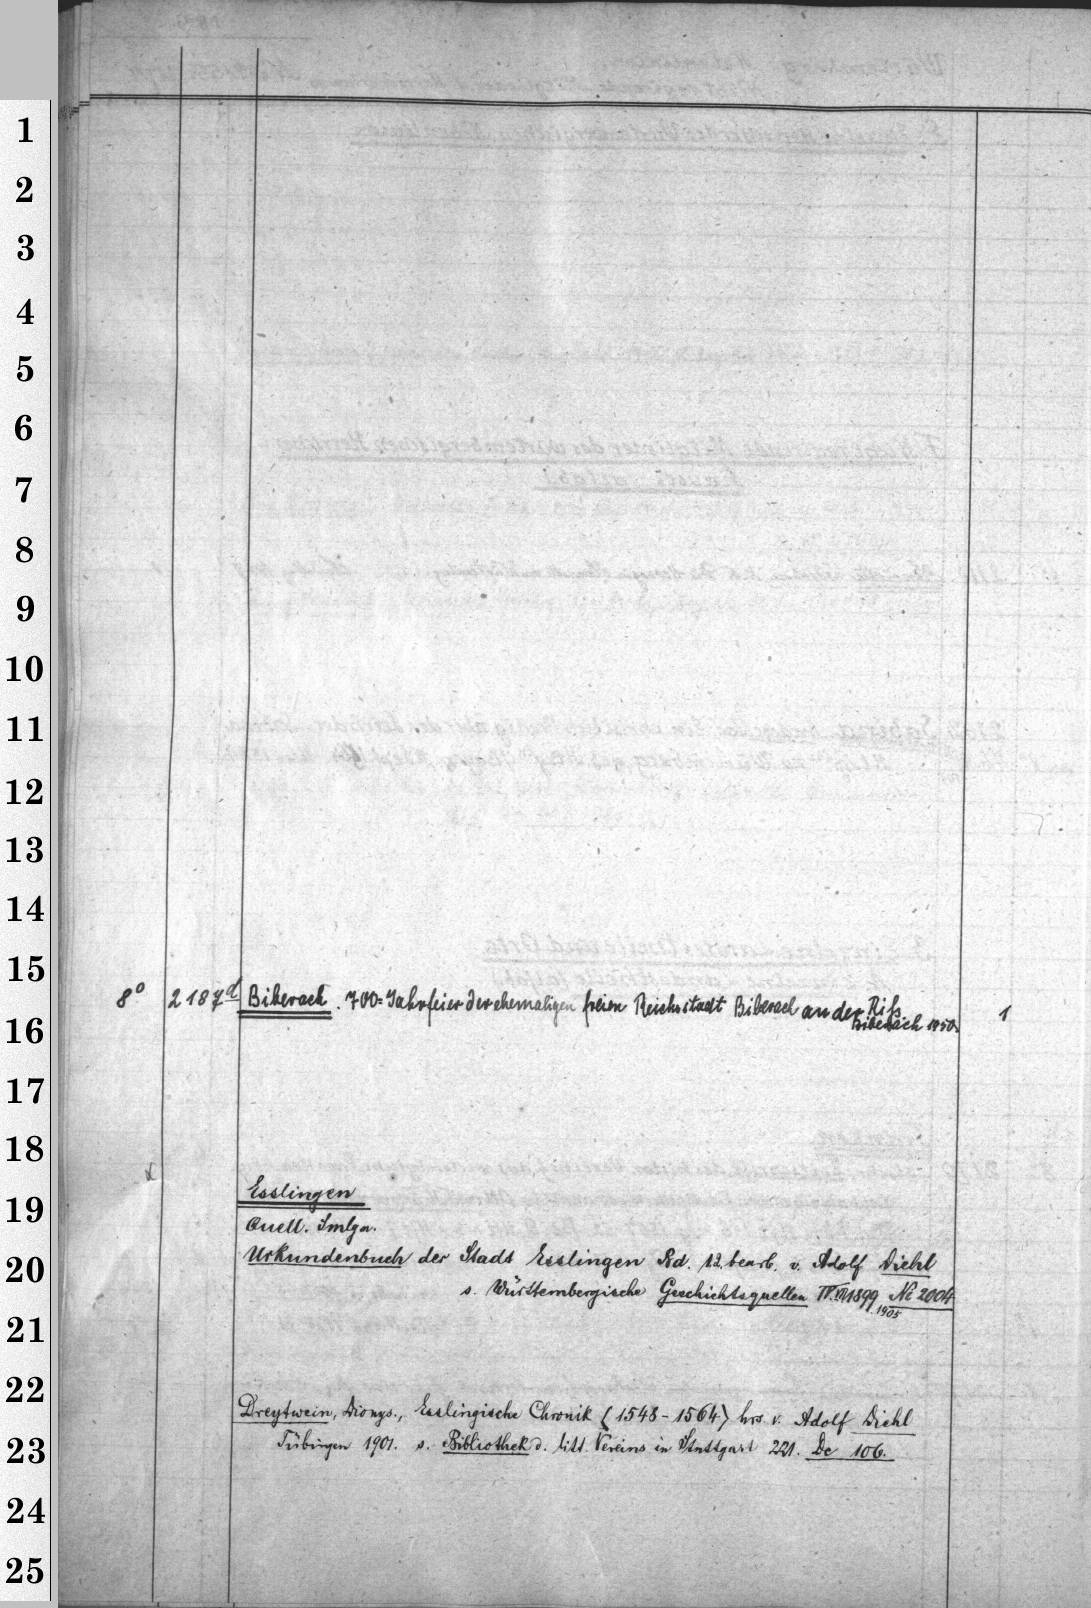 1
2
3
4
5
6
7
8
9
10
11
12
13
14
15
8° 2187d Biberach. 700=Jahrfeier der ehemaligen freien Reichsstadt Biberach an der Riß
Biberach 1950. 1
16
17
18
Esslingen
19
Quell. Smlgn.
Urkundenbuch der Stadt Esslingen Bd. 1.2. bearb. v. Adolf Diehl
20
s. Württembergische Geschichtsquellen IV. VII 1899 No 2004
1905
21
22
Dreytwein, Dionys., Esslingische Chronik (1548-1564) hrs v. Adolf Diehl
Tübingen 1901. s. Bibliothek d. litt. Vereins in Stuttgart 221. De 106.
23
24
25